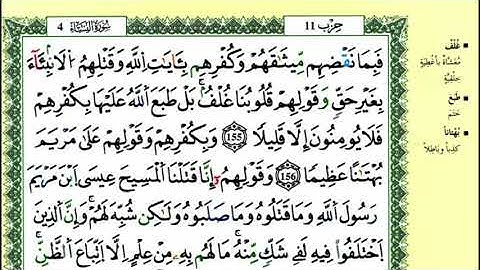 حِزْب 11
سُورَةُ النِّسَاءِ 4
فَبِمَا نَقْضِهِم مِّيثَٰقَهُمْ وَكُفْرِهِم بِـَٔايَٰتِ اِ۬للَّهِ وَقَتْلِهِمُ اُ۬لَانۢبِئَآءَ
بِغَيْرِ حَقٍّ وَقَوْلِهِمْ قُلُوبُنَا غُلْفٌۢ بَلْ طَبَعَ اَ۬للَّهُ عَلَيْهَا بِكُفْرِهِمْ
فَلَا يُومِنُونَ إِلَّا قَلِيلًا 155 وَبِكُفْرِهِمْ وَقَوْلِهِمْ عَلَىٰ مَرْيَمَ
بُهْتَٰنًا عَظِيمًا 156 وَقَوْلِهِمُۥٓ إِنَّا قَتَلْنَا اَ۬لْمَسِيحَ عِيسَى اَ۪بْنَ مَرْيَمَ
رَسُولَ اَ۬للَّهِ وَمَا قَتَلُوهُ وَمَا صَلَبُوهُ وَلَٰكِن شُبِّهَ لَهُمْ وَإِنَّ اَ۬لذِينَ
اَ۪خْتَلَفُوا۟ فِيهِ لَفِے شَكٍّ مِّنْهُ مَا لَهُم بِهِۦ مِنْ عِلْمٍ اِلَّا اَ۪تِّبَاعَ اَ۬لظَّنِّ
غُلْفٌ
مُغَشَّاةٌ بِأَغْطِيَةٍ
خِلْقِيَّةٍ
طَبَعَ
خَتَمَ
بُهْتَاناً
كَذِباً وَبَاطِلاً